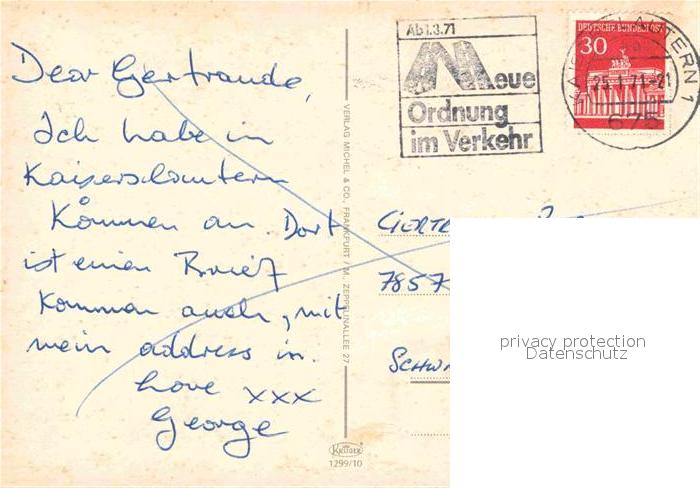 Dear Gertraude,
Ich habe in
Kaiserslautern
Kommen an. Dort
ist einen Brief
Kommen auch, mit
mein address in.
Love xxx
George
VERLAG MICHEL & CO., FRANKFURT / M., ZEPPELINALLEE 27
KRÜGER
1299/10
Ab 1.3.71
Neue
Ordnung
im Verkehr
DEUTSCHE BUNDESPOST
30
KAISERSLAUTERN 1
25.1.71-21
675
GERTR
7857
SCHW
privacy protection
Datenschutz